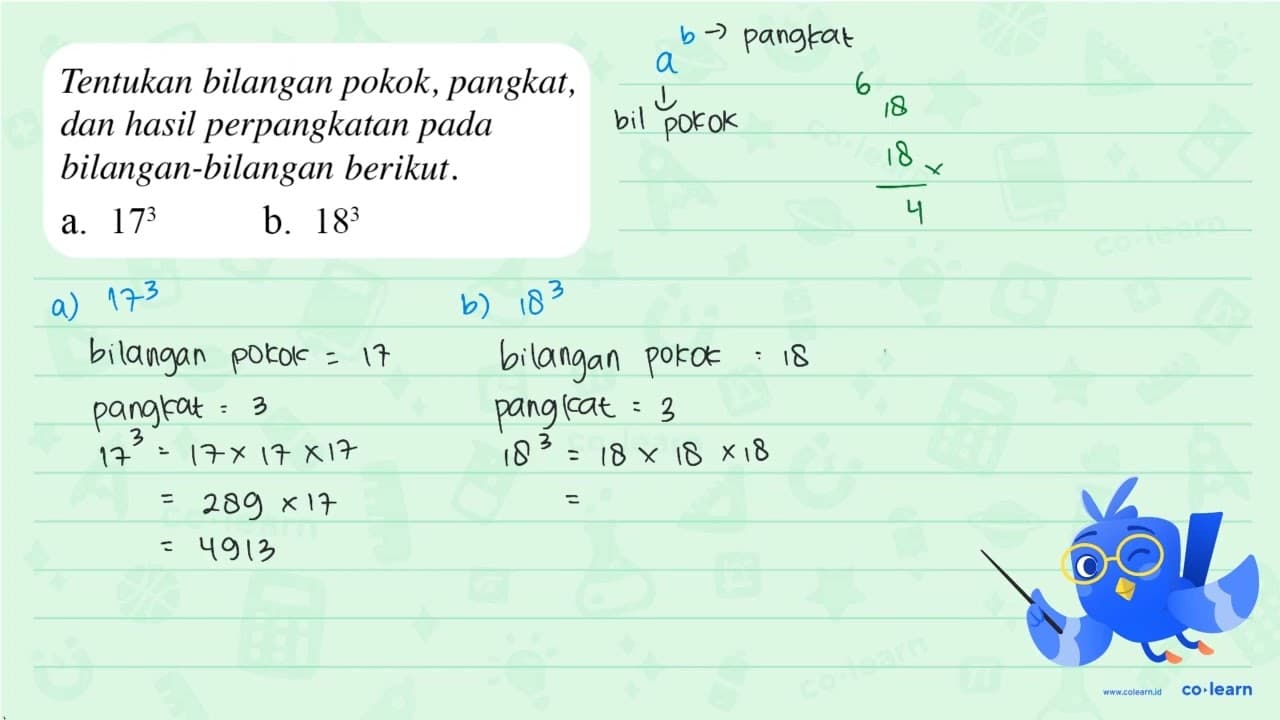 Tentukan bilangan pokok, pangkat,
dan hasil perpangkatan pada
bilangan-bilangan berikut.
a. 17³ b. 18³
aᵇ → pangkat
↓
bil pokok
6
18
18 ×
4
a) 17³
bilangan pokok = 17
pangkat = 3
17³ = 17 × 17 × 17
= 289 × 17
= 4913
b) 18³
bilangan pokok : 18
pangkat = 3
18³ = 18 × 18 × 18
=
www.colearn.id co·learn